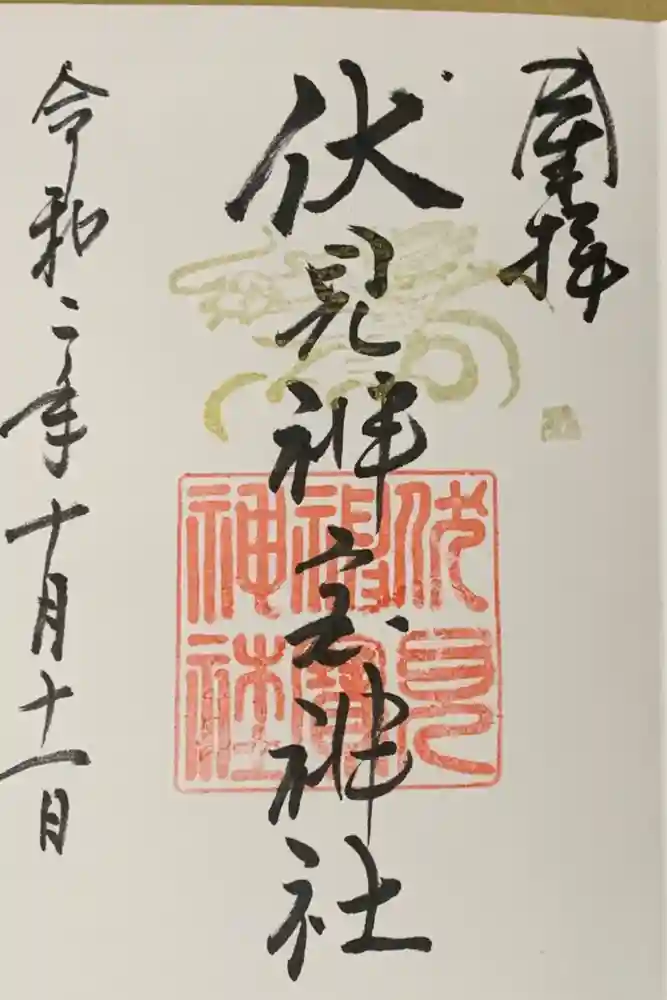 拝
伏見神宝神社
令和二年十月十一日
伏見
神寶
神社